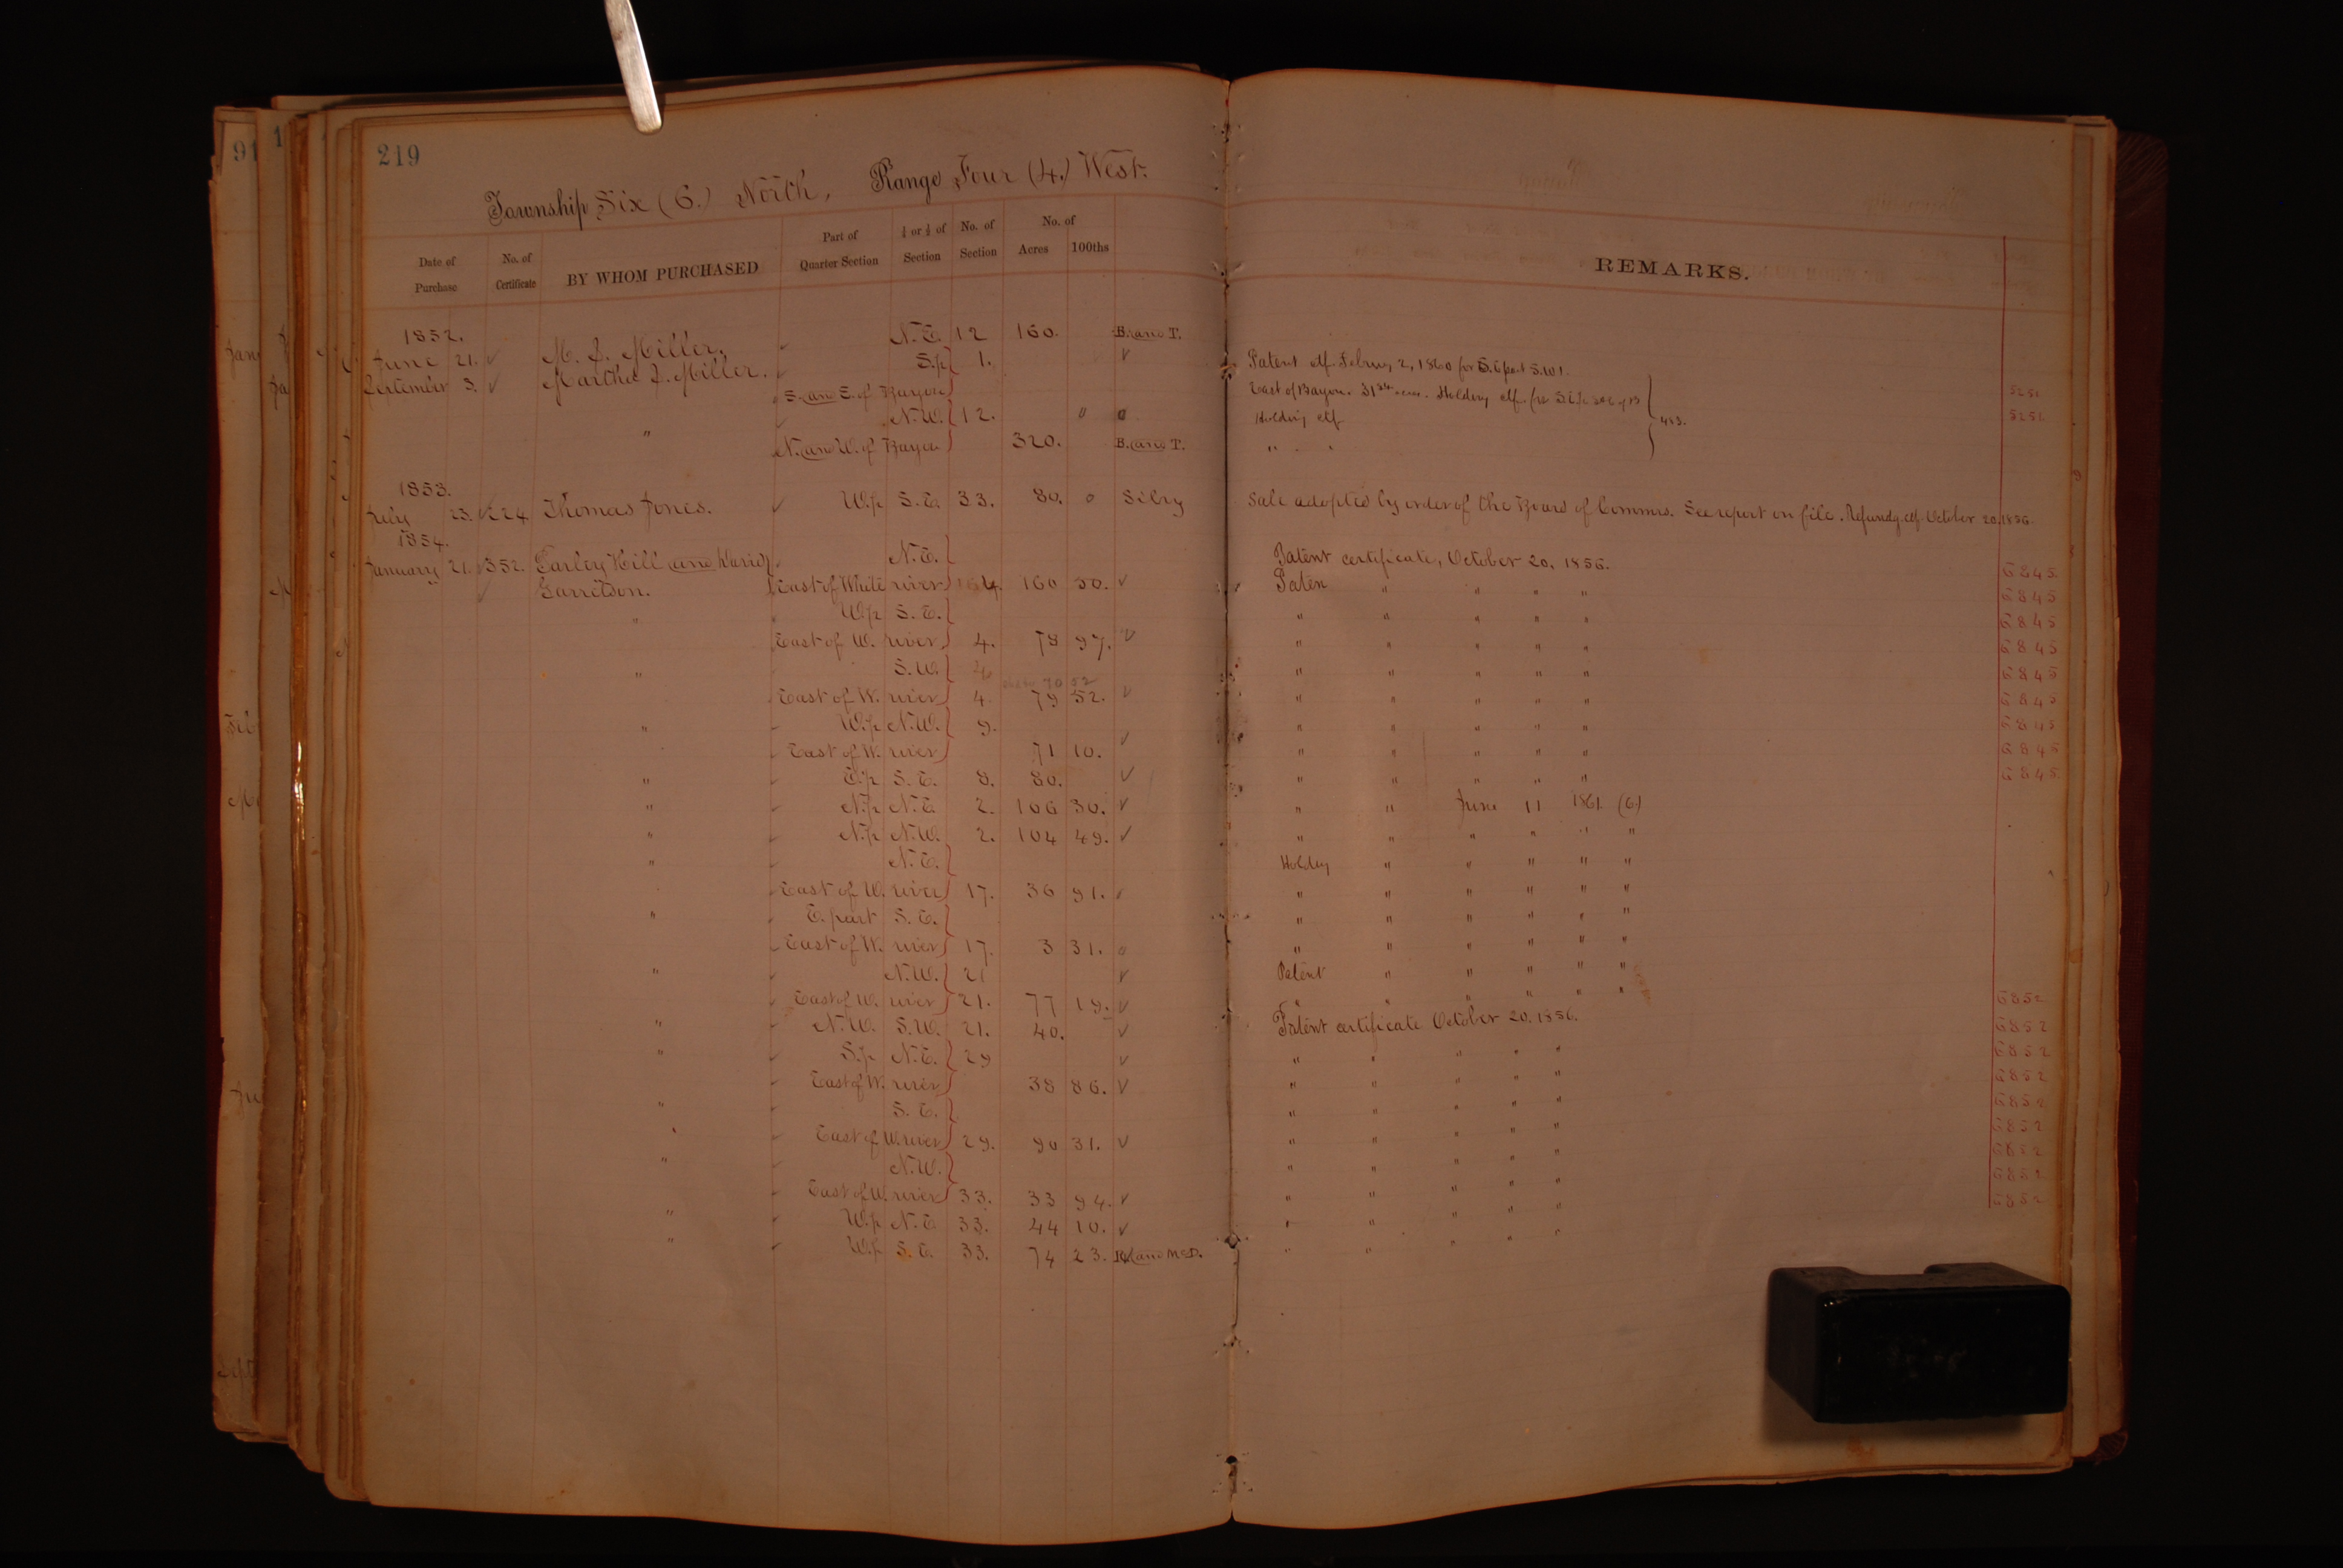 91
1
219
Township Six (6.) North, Range Four (4.) West.
Date of Purchase No. of Certificate BY WHOM PURCHASED Part of Quarter Section ¼ or ½ of Section No. of Section No. of Acres 100ths REMARKS.
1852.
June 21. M. J. Miller. N.E. 12 160. B. and T.
September 3. Martha J. Miller. S.p 1. Patent ctf. 2, 1860 for S.W 1.
S. and E. of Bayou East of Bayou. Holding ctf. 5252
N.W. 12. " Holding ctf 483. 5252
" N. and W. of Bayou 320. B. and T. " "
1853.
July 23. 224 Thomas Jones. W.p S.E. 33. 80. 0 Sale adopted by order of the Board of Commrs. See report on file. Refundg. ctf. October 20, 1856.
1854.
January 21. 352. Earley Hill and David N.E. Patent certificate, October 20, 1856. 6845
" Garretson. East of White river 4. 160 50. Paten " " " " 6845
" W.p S.E. " " " " " 6845
East of W. river 4. 78 97. " " " " " 6845
" S.W. 4 " " " " " 6845
East of W. river 4 79 52. " " " " " 6845
" W.p N.W. 9. " " " " " 6845
East of W. river 71 10. " " " " " 6845
" E.p S.E. 8. 80. " " " " " 6845
" N.p N.E. 2. 106 30. " " June 11 1861 (6)
" N.p N.W. 2. 104 49. " " " " " "
" N.E. Holding " " " " "
East of W. river 17. 36 91. " " " " " "
" E. part S.E. " " " " " "
East of W. river 17. 3 31. " " " " " "
" N.W. 21 Patent " " " " "
East of W. river 21. 77 19. " " " " " " 6852
" N.W. S.W. 21. 40. Patent certificate October 20, 1856. 6852
" S.p N.E. 29 " " " " " 6852
East of W. river 38 86. " " " " " 6852
" S.E. " " " " " 6852
East of W. river 29. 90 31. " " " " " 6852
" N.W. " " " " " 6852
East of W. river 33. 33 94. " " " " " 6852
" W.p N.E. 33. 44 10. " " " " " 6852
" W.p S.E. 33. 74 23. and McD. " " " " "